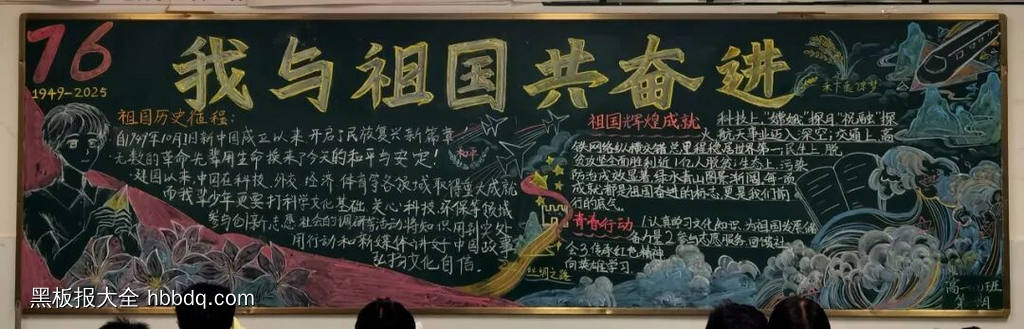 76
1949-2025
我与祖国共奋进
祖国历史征程:
自1949年10月1日新中国成立以来开启了民族复兴新篇章
无数的革命先辈用生命换来了今天的和平与安定!
建国以来,中国在科技、外交、经济、体育等各领域取得重大成就
而我辈少年更要打科学文化基础,关心科技、环保等领域
参与创新、志愿、社会的调研等活动将知识用到实处
用行动和新媒体讲好中国故事
弘扬文化自信。
和平
丝绸之路
祖国辉煌成就
科技上,"嫦娥"探月"祝融"探
火,航天事业迈入深空;交通上,高
铁网络纵横交错,总里程稳居世界第一,民生上,脱
贫攻坚全面胜利,近1亿人脱贫;生态上,污染
防治成效显著,绿水青山图景渐阔,每一项
成就都是祖国奋进的标志,更是我们前
行的底气。
青春行动
1认真学习文化知识,为祖国发展储
备力量2参与志愿服务,回馈社
会3传承红色精神
向英雄学习
禾下乘凉梦
高一班
第期
黑板报大全 hbbdq.com